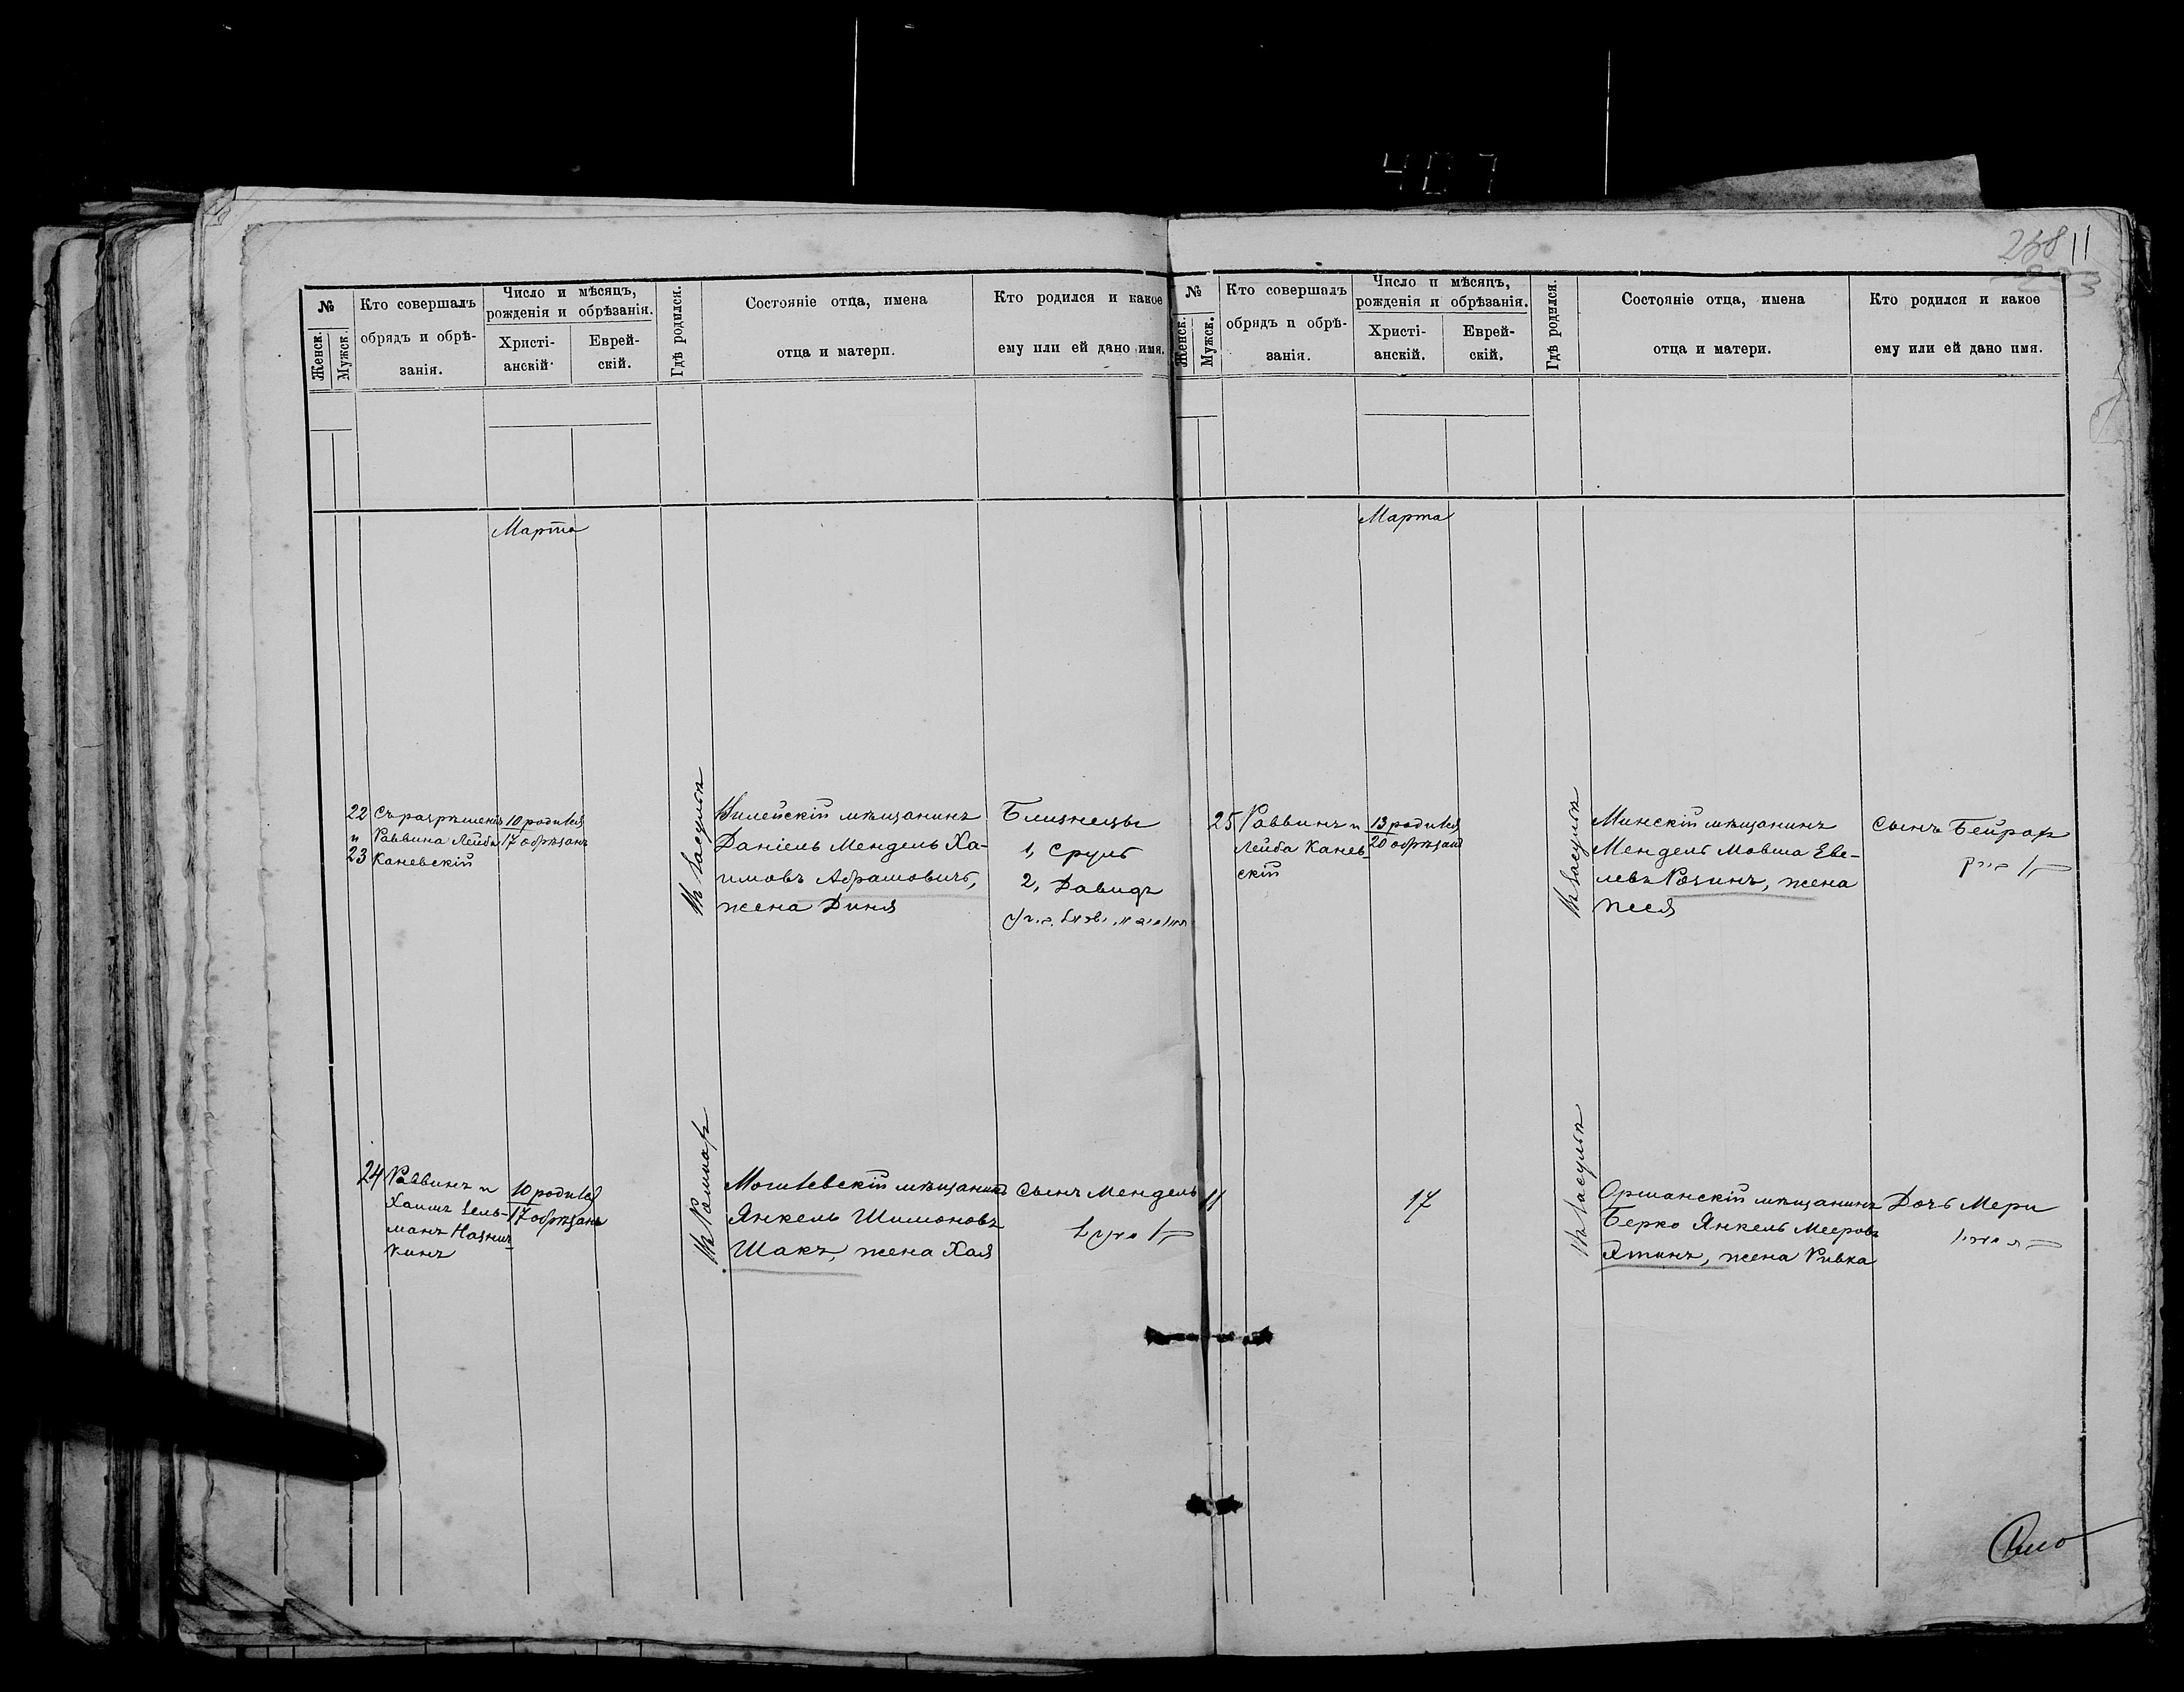 407
258 11
№
Женск.
Мужск.
Кто совершалъ
обрядъ и обрѣ-
занія.
Число и мѣсяцъ,
рожденія и обрѣзанія.
Христі-
анскій.
Еврей-
скій.
Гдѣ родился.
Состояніе отца, имена
отца и матери.
Кто родился и какое
ему или ей дано имя.
Марта
22
и
23
Съ разрѣшенія
Раввина Лейба
Каневскій
10 родился
17 обрѣзанъ
Вилейскій мѣщанинъ
Даніель Мендель Ха-
имовъ Абрамовичъ,
жена Диня
Близнецы
1, Сруль
2, Давидъ
24
Раввинъ и
Хаимъ Зель-
манъ
10 родился
17 обрѣзанъ
Могилевскій мѣщанинъ
Янкель Шимоновъ
Шакъ, жена Хая
Сынъ Мендель
№
Женск.
Мужск.
Кто совершалъ
обрядъ и обрѣ-
занія.
Число и мѣсяцъ,
рожденія и обрѣзанія.
Христі-
анскій.
Еврей-
скій.
Гдѣ родился.
Состояніе отца, имена
отца и матери.
Кто родился и какое
ему или ей дано имя.
Марта
25
Раввинъ и
Лейба Канев-
скій
13 родился
20 обрѣзанъ
Минскій мѣщанинъ
Мендель Мовша Еве-
левъ Розинъ, жена
Песя
Сынъ
11
17
Оршанскій мѣщанинъ
Берко Янкель Мееровъ
жена Ривка
Дочь Мери